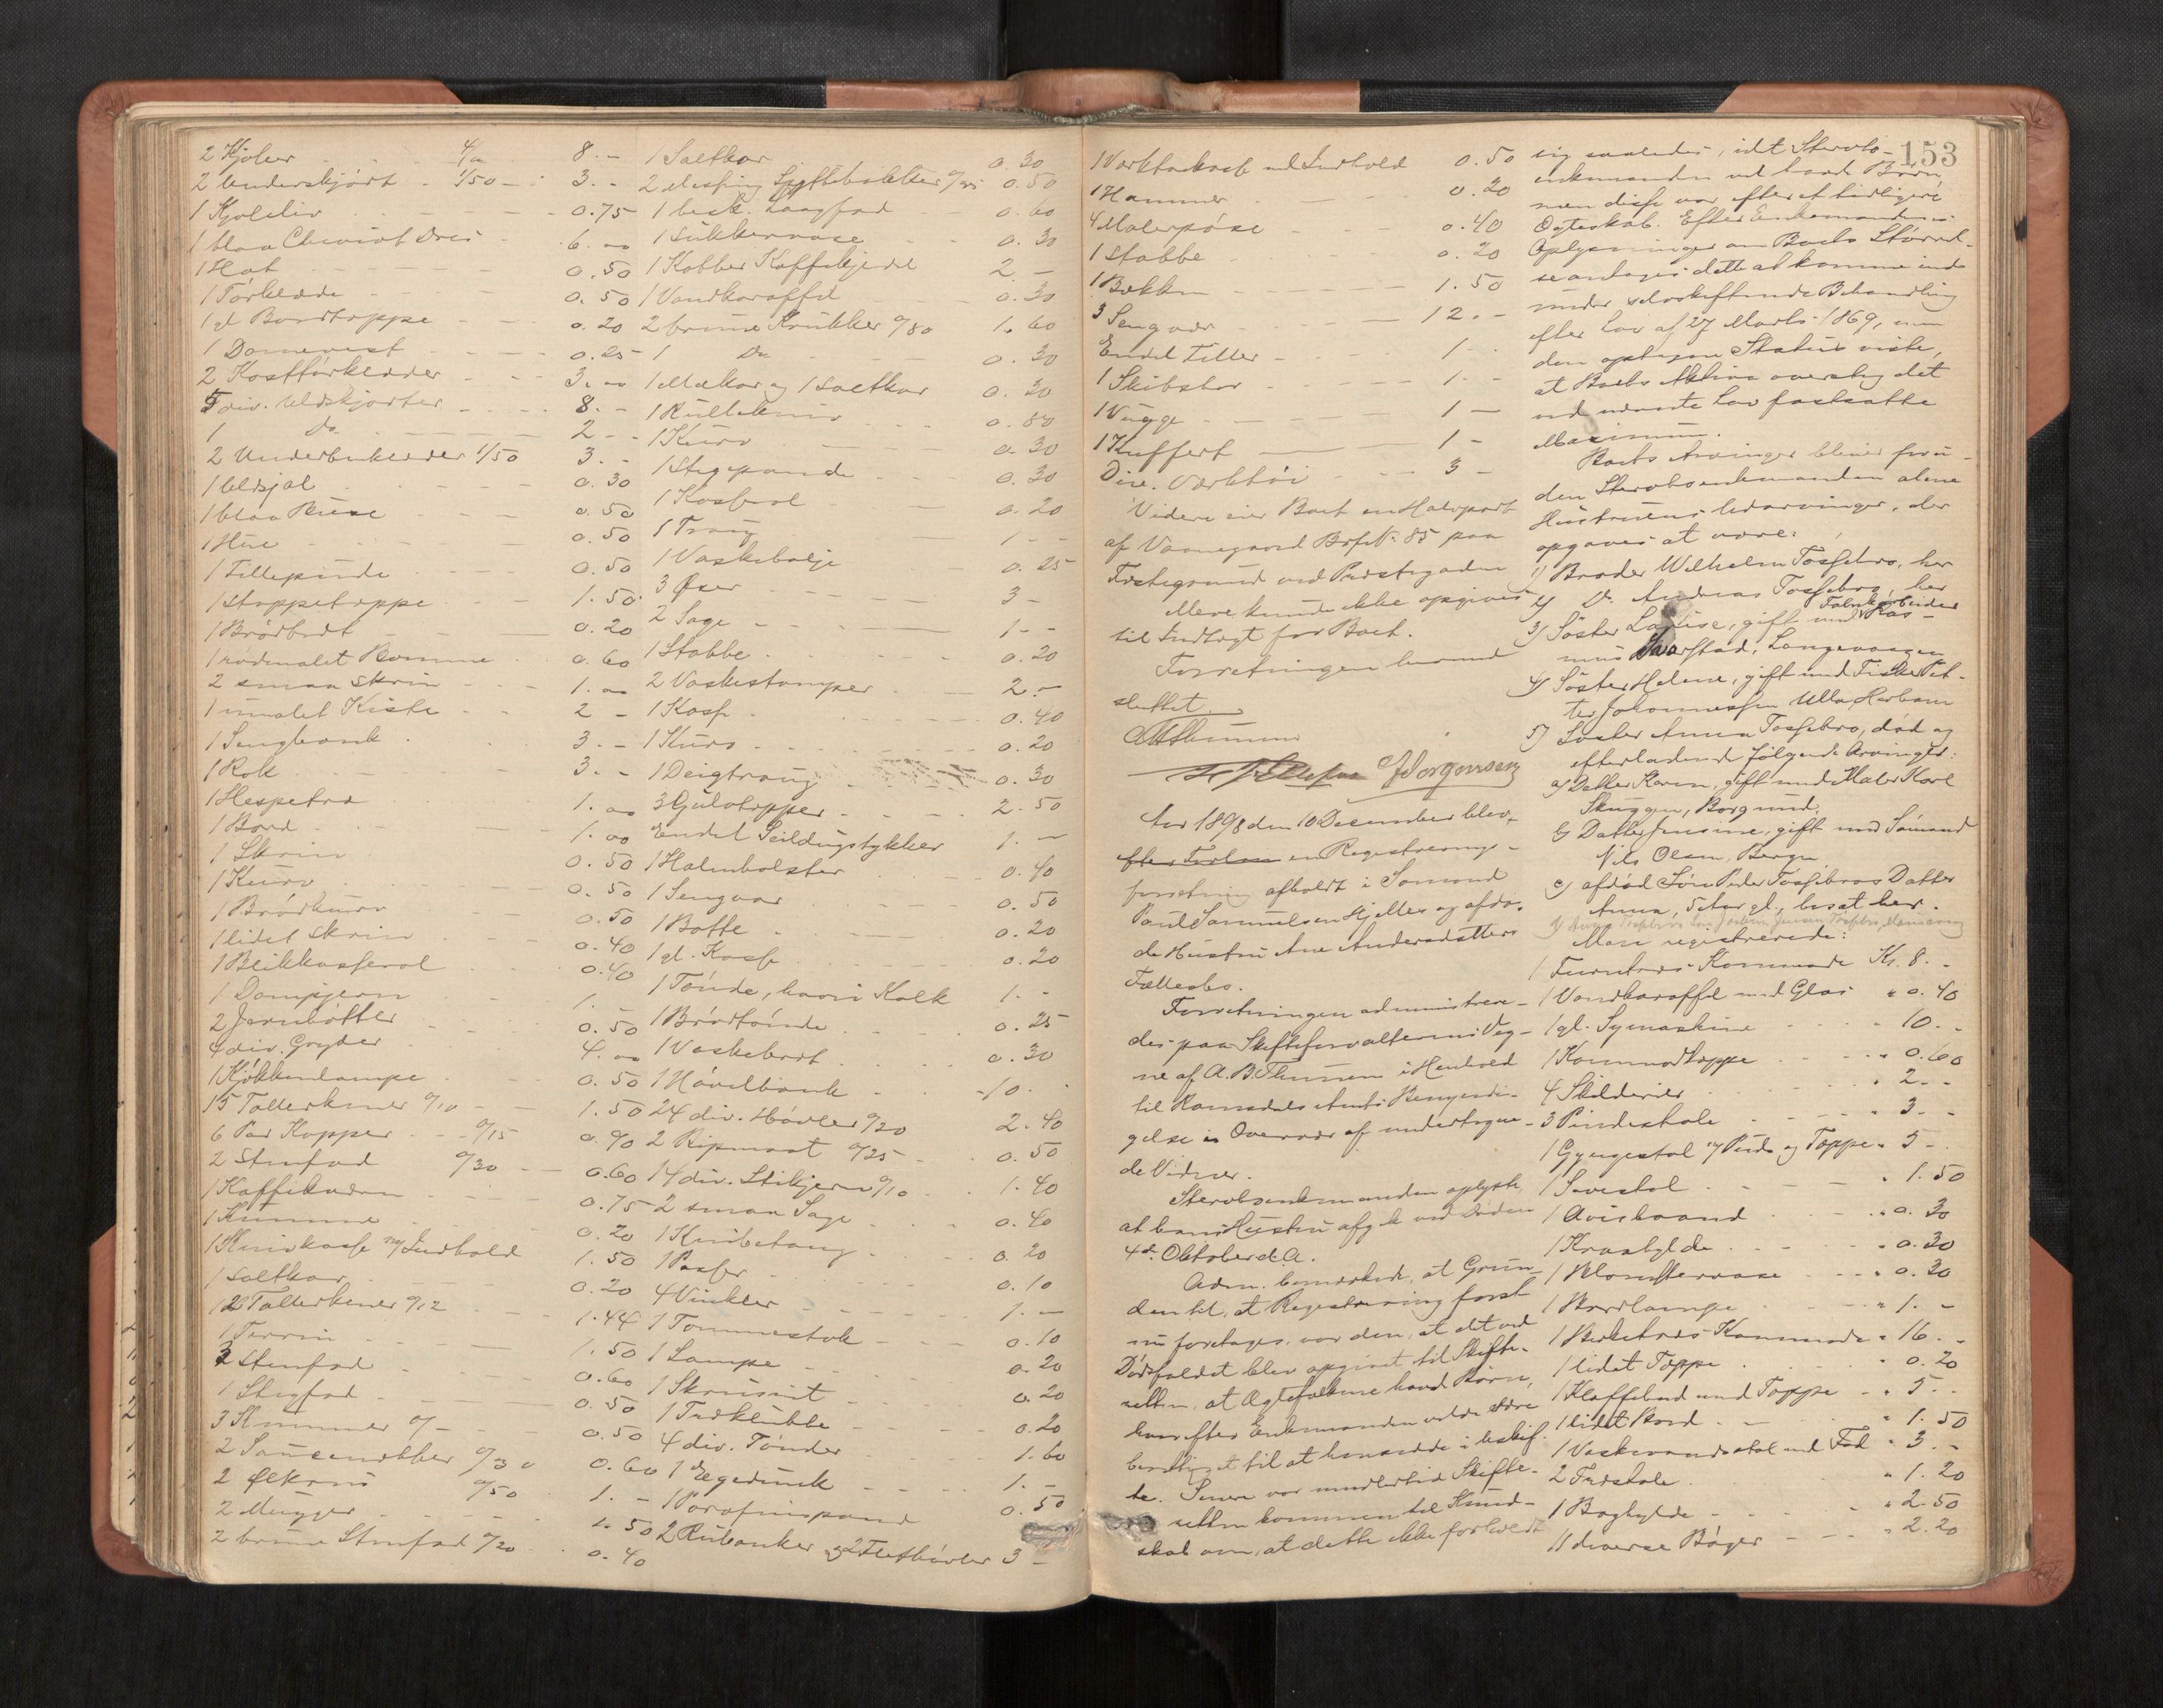 2 Kjoler 4/00 8.-
2 Underskjørt 1/50 3.-
1 Kjoleliv 0.75
1 blaa Cheviot Dres 6.00
1 Hat 0.50
1 Tørklæde 0.50
1 gl. Bordteppe 0.20
1 Damevest 0.25
2 Kofttørklæder 3.00
5 div. Uldskjorter 8.-
1 Do. 2.-
2 Underbenklæder 1/50 3.-
1 Uldsjal 0.30
1 blaa Buse 0.50
1 Hue 0.50
1 Fillepude 0.50
1 Stoppeteppe 1.50
1 Brødbrdt 0.20
1 rødmalet Bomme 0.60
2 smaa Skrin 1.00
1 umalet Kiste 2-
1 Sengbænk 3.-
1 Rok 3.-
1 Hespetræ 1.00
1 Bord 1.00
1 Skrin 0.50
1 Kurv 0.50
1 Brødkurv 0.50
1 lidet Skrin 0.40
1 Blikkasserol 0.40
1 Dampjern 1.
2 Jernbøtter 0.50
4 div. Gryder 4.00
1 Kjøkkenlampe 0.50
15 Tallerkener 0/10 1.50
6 Par Kopper 0/15 0.90
2 Stenfad 0/30 0.60
1 Kaffekværn 0.75
1 Kumme 0.20
1 Knivkasse m/Indhold 1.50
1 Saltkar 0.20
12 Tallerkener 0/12 1.44
1 Terrin 1.50
2 Stenfad 0.60
1 Stegfad 0.50
3 Kummer 0/- 0.50
2 Saucenebber 0/30 0.60
2 Ølkrus 0/50 1.-
2 Mugger 1.50
2 brune Stenfad 0/20 0.40
1 Saltkar 0.30
2 Messing Lysestikker 0/25 0.50
1 besk. Laagfad 0.60
1 Sukkervase 0.30
1 Kobber Kaffekjedel 2-
1 Vandkaraffel 0.30
2 brune Krukker 0/80 1.60
1 Do 0.30
1 Melkar og 1 Saltkar 0.30
1 Rullekniv 0.80
1 Kurv 0.30
1 Stegepande 0.30
1 Kasserol 0.20
1 Traug 1--
1 Vaskebalje 0.25
3 Øxer 3-
2 Sage 1--
1 Stabbe 0.20
2 Vaskestamper 2.-
1 Kasse 0.40
1 Kurv 0.20
1 Deigtraug 0.30
3 Gulvtepper 2.50
Endel Seildugstykker 1.-
1 Halmbolster 0.40
1 Sengvar 0.50
1 Bøtte 0.20
1 gl. Kasse 0.20
1 Tønde, hvori Kalk 1.-
1 Brødtønde 0.25
1 Vaskebrdt 0.30
1 Høvelbænk 10.
24 div. Høvler 0/10 2.40
2 Ripmaat 0/25 0.50
14 div. Stikjern 0/10 1.40
2 smaa Sage 0.40
1 Knibetang 0.20
1 Passer 0.10
4 Vinkler 1.-
1 Tommestok 0.10
1 Lampe 0.20
1 Skruestit 0.20
1 Træklubbe 0.20
4 div. Tønder 1.60
1 Egedunk 1.-
1 Parafinspand 0.50
2 Rubanker og 2 Fletthøvler 3-
1 Værktøikasse med Indhold 0.50
1 Hammer 0.20
4 Malerpøse 0.40
1 Stabbe 0.20
1 Bækken 1.50
3 Sengvær 12.-
Endel Filler 1-
1 Skibskar 1.-
1 Vugge 1-
1 Kuffert 1-
Dive. Værktøi 3-
Videre eier Boet en Halvpart
af Vaanegaard Brf. N. 85 paa
Fæstegrund ved Præstegaden
Mere kunde ikke opgives
til Indtægt for Boet.
Forretningen hermed
sluttet.
AThunem
J Jørgensen
Aar 1898 den 10 December blev
efter Forlan en Registrerings-
forretning afholdt i Sømand
Paul Samuelsen Hjelles og afdø-
de Hustru Ane Andersdatters
Fællesbo.
Forretningen administrere-
des paa Skifteforvalterens Veg-
ne af A. B. Thunem i Henhold
til Romsdals Amts Bemyndi-
gelse i Overvær af undertegne-
de Vidner.
Stervboenkemanden oplyste
at hans Hustru afgik ved Døden
4de Oktober d. A.
Adm. bemærkede, at Grun-
den til, at Registrering først
nu foretages, var den, at det ved
Dødsfaldet blev opgivet til Skifte-
retten, at Ægtefolkene havde Børn,
hvorefter Enkemanden vilde være
berettiget til at hensidde i uskif-
te. Senere var imidlertid Skifte-
retten kommen til Kund-
skab om, at dette ikke forholdt
153
sig saaledes, idet Stervbo-
enkemanden vel havde Børn
men disse var efter et tidligere
Ægteskab. Efter Enkemandens
Oplysninger om Boets Størrel-
se antages dette at komme ind
under udenskiftende Behandling
efter Lov af 27 Marts 1869, men
den optagne Status viste,
at Boets Aktiva oversteg det
ved nævnte Lov fastsatte
Maximum.
Boets Arvinger bliver foru-
den Stervboenkemanden alene
Hustruens Udarvinger, der
opgaves at være:
1) Broder Wilhelm Fossebro, her
2) Do. Andreas Fossebro, her
3) Søster Lovise, gift med Fabrikarbeider Ras-
mus Svarstad, Langevaagen
4) Søster Helene, gift med Fisker Pet-
ter Johannessen Ulla, Harham
5) Søster Anna Fossebro, død og
efterladende følgende Arvinger:
a) Datter Karen, gift med Maler Karl
Skuggen, Borgund
b) Datter Jensine, gift med Sømand
Nils Olsen, Bergen
c) afdød Søn Peder Fossebros Datter
Anna, 5 Aar gl., bosat her.
Man registrerede:
1 Furutræs Kommode Kr. 8.-
1 Vandkaraffel med Glas " 0.40
1 gl. Symaskine 10.-
1 Kommodteppe " 0.60
4 Skilderier " 2.-
3 Pindestole " 3.-
1 Gyngestol m/Pude og Teppe " 5-
1 Sovestol " 1.50
1 Avisbaand " 0.30
1 Kraahylde " 0.30
1 Blomstervase " 0.30
1 Bordlampe " 1.-
1 Birketræs Kommode " 16.-
1 lidet Teppe " 0.20
1 Klaffebord med Teppe " 5.-
1 lidet Bord " 1.50
1 Vaskevandsstol med Fad " 3.-
2 Træstole " 1.20
1 Boghylde " 2.50
11 diverse Bøger " 2.20